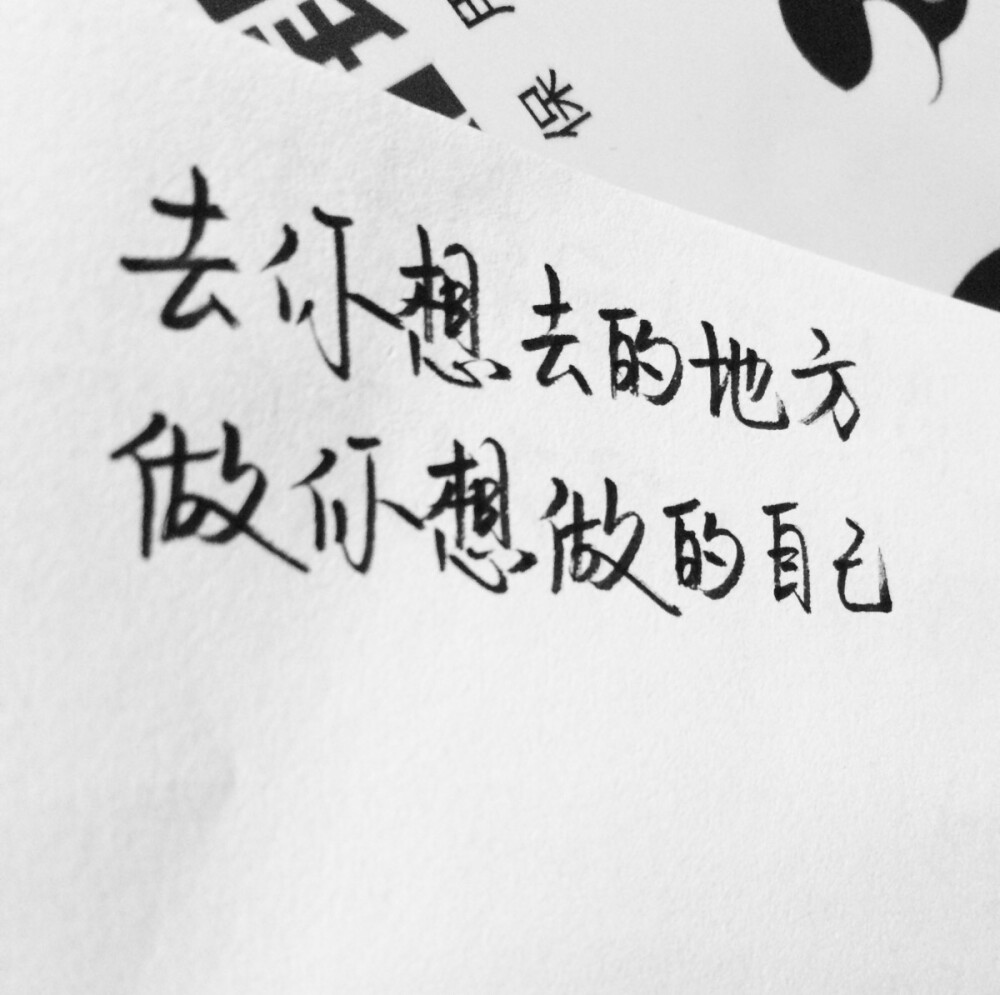 去你想去的地方
做你想做的自己
保